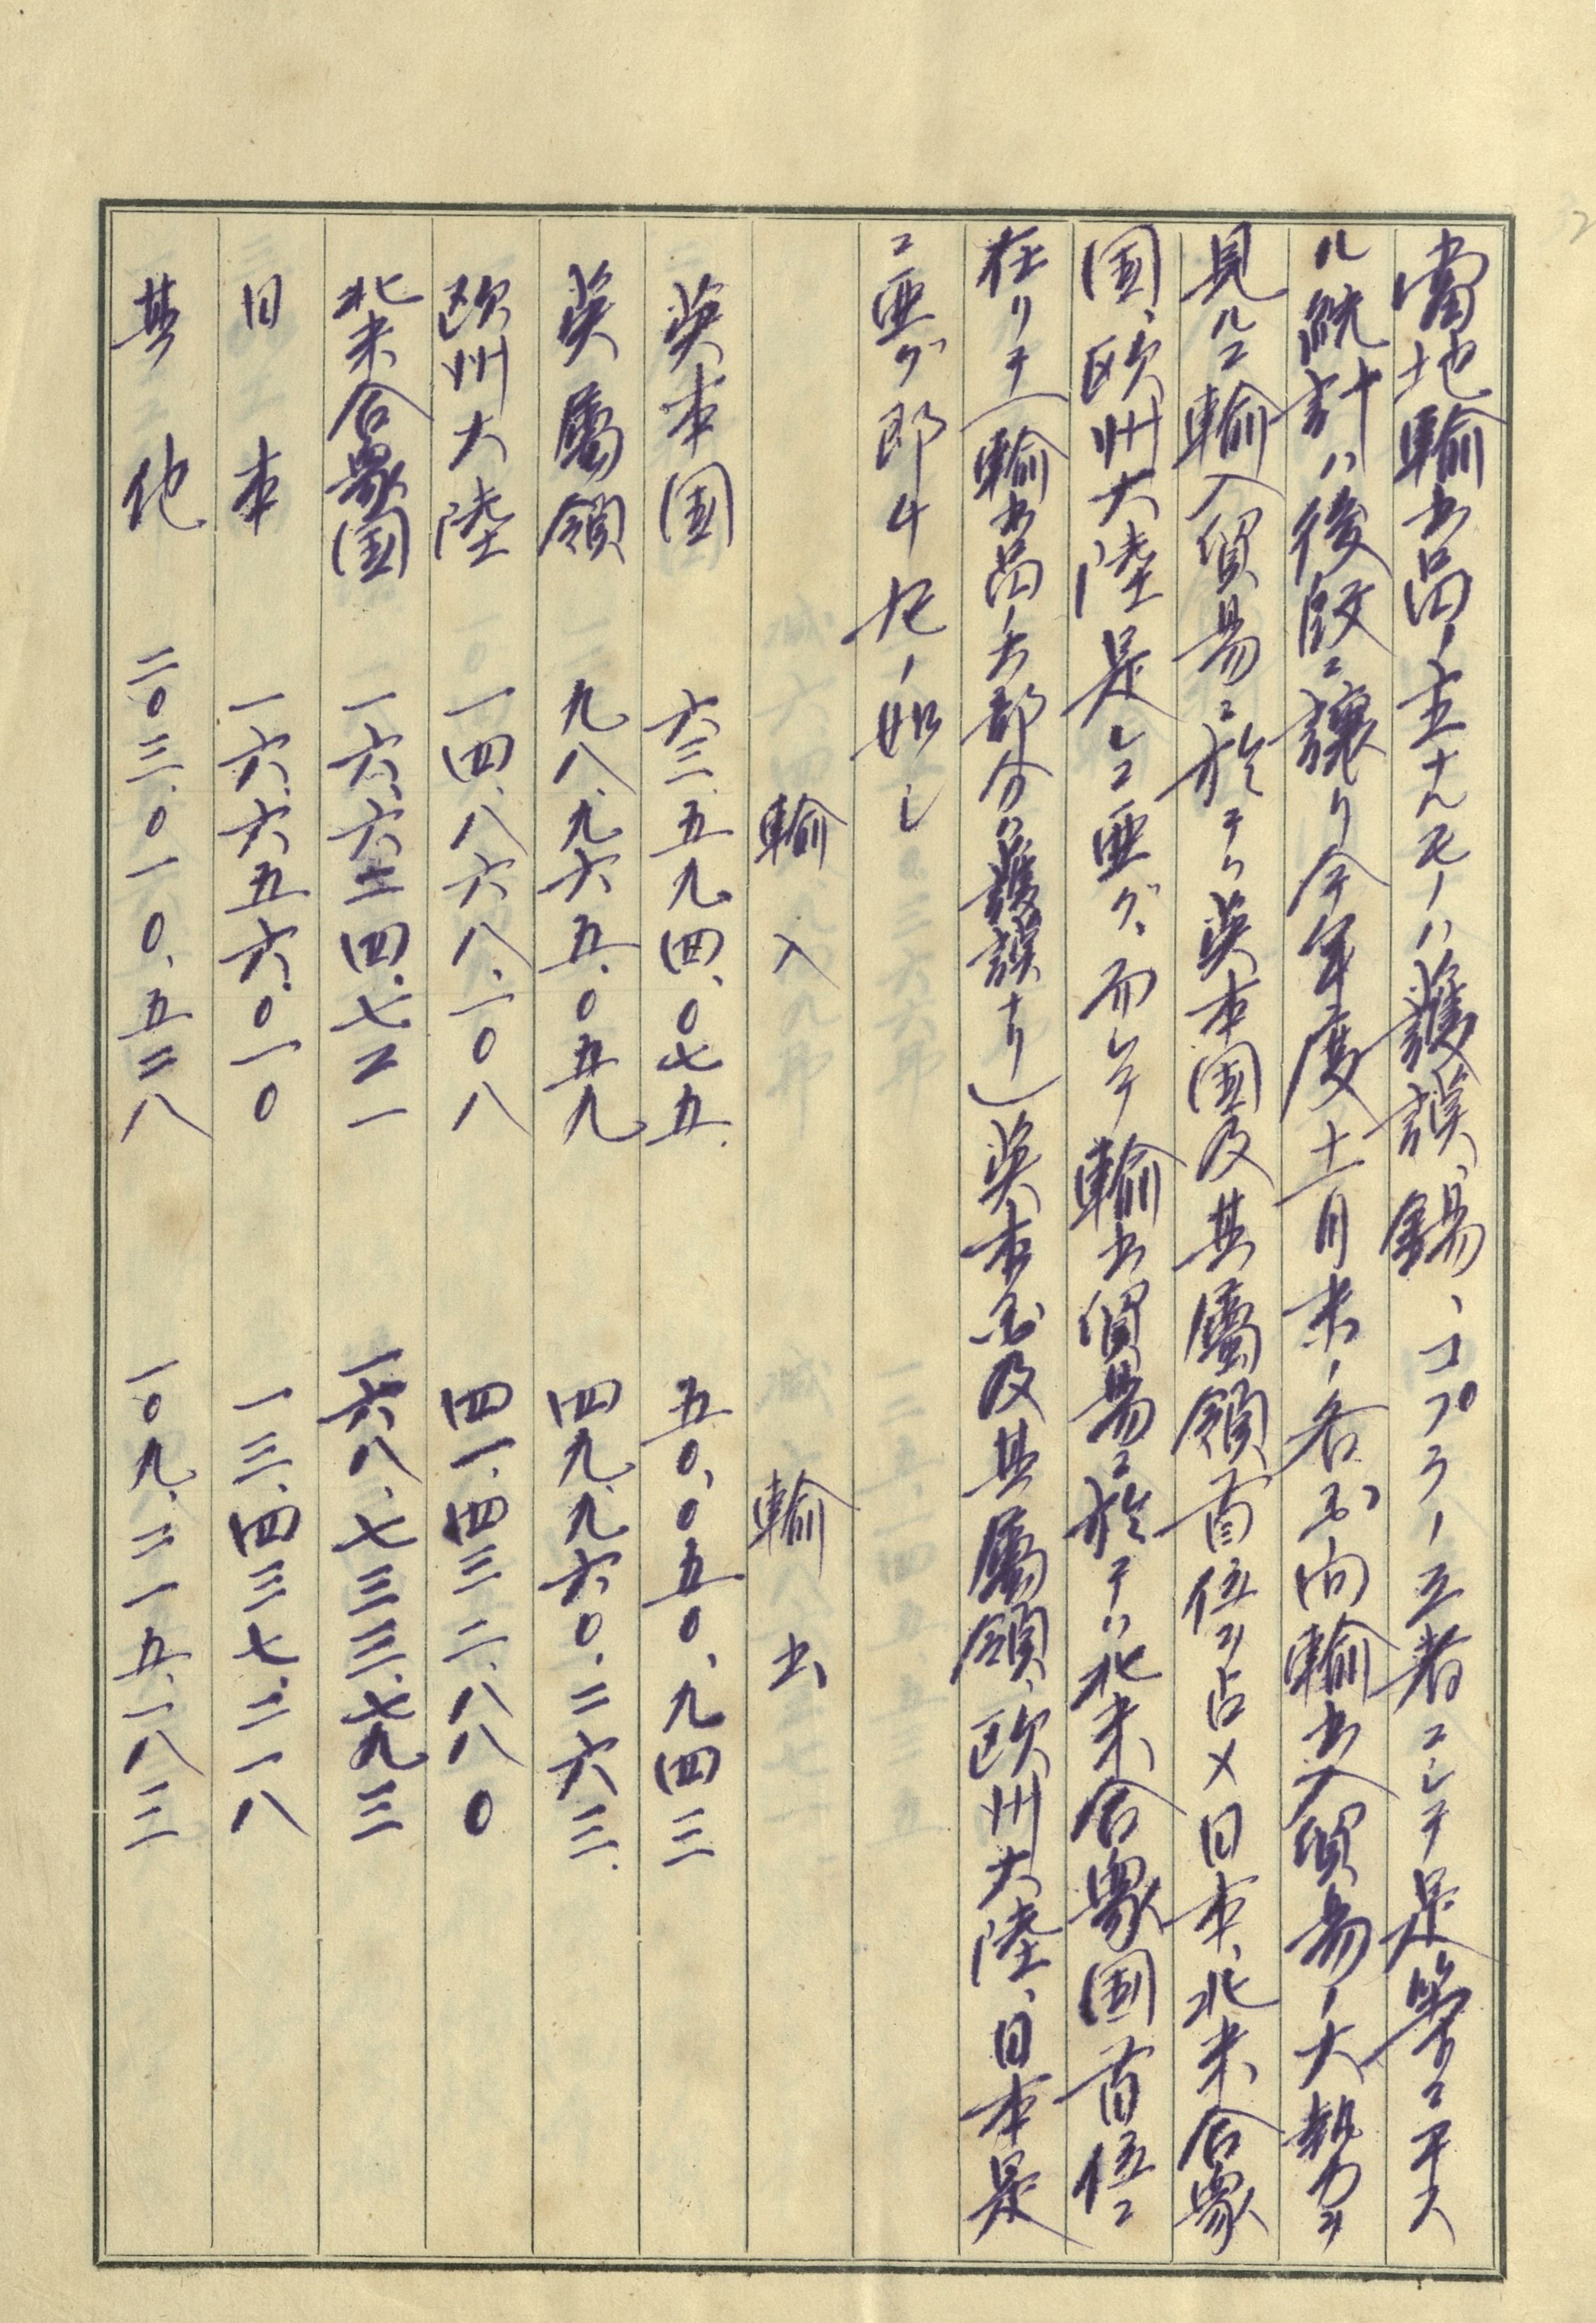 當地輸出品ノ主ナルモノハ護謨、錫、コプラノ三者ニシテ是等ニ干ス
ル統計ハ後段ニ譲リ今年度十一月末ノ各国向輸出入貿易ノ大勢力ヲ
見ルニ輸入貿易ニ於テハ英本国及其属領首位ヲ占メ日本、北米合衆
国、欧州大陸是レニ亜グ、而シテ輸出貿易ニ於テハ北米合衆国首位ニ
在リテ(輸出品ノ大部分ハ護謨ナリ)英本国及其属領、欧州大陸、日本是
ニ亜グ即チ左ノ如シ
輸入 輸出
英本国 六三、五九四、〇七五. 五〇、〇五〇、九四三
英属領 九八、九六五、〇五九 四九、九六〇、二六三.
欧州大陸 一四、八六八、一〇八 四一、四三二、八八〇
北米合衆国 一六、六二四、七二一 一六八、七三三、七九三
日本 一六、六五六、〇一〇 一三、四三七、二一八
其他 二〇三、〇一〇、五二八 一〇九、二一五、一八三